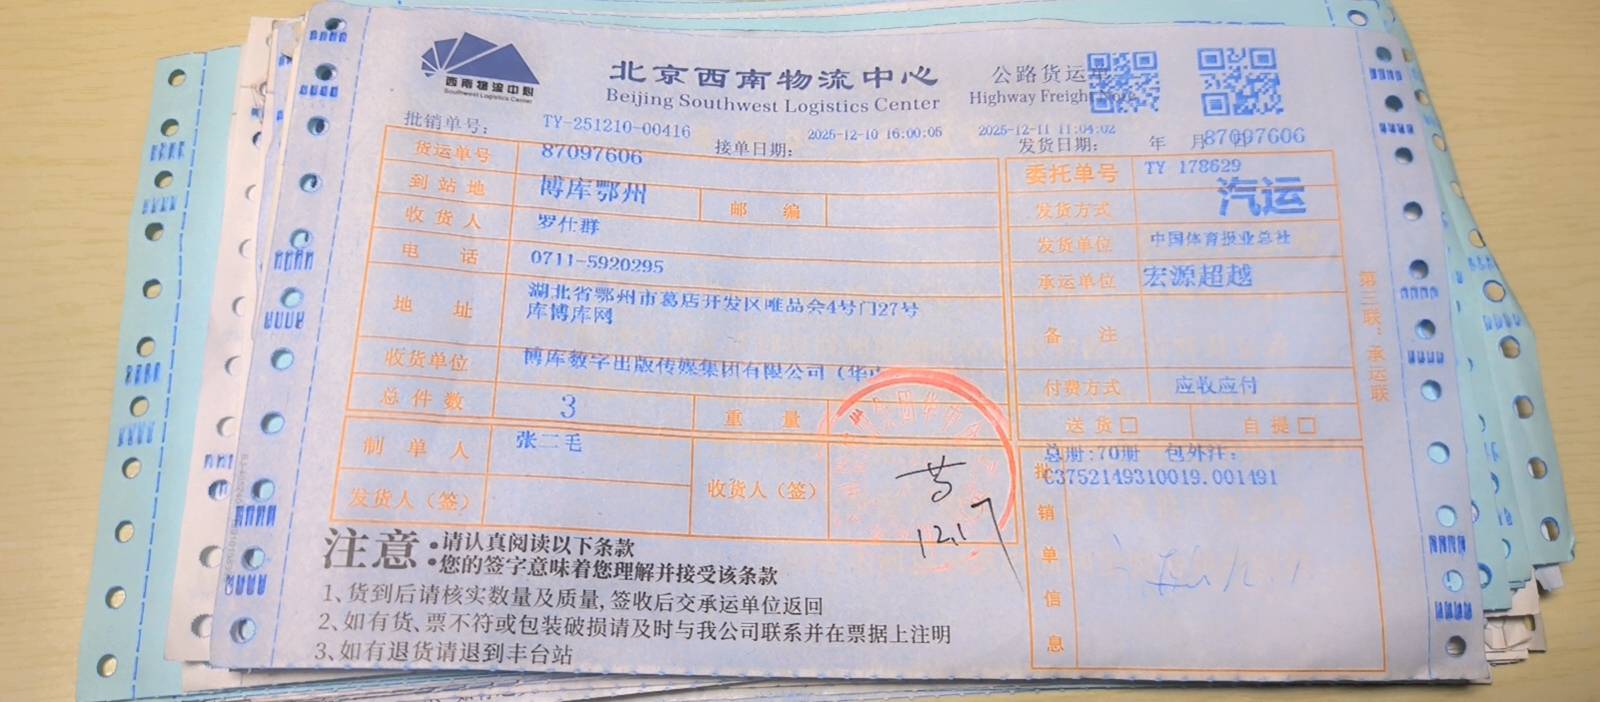 西南物流中心
Southwest Logistics Center
北京西南物流中心
Beijing Southwest Logistics Center
公路货运单
Highway Freight Note
批销单号： TY-251210-00416
接单日期： 2025-12-10 16:00:05
发货日期： 2025-12-11 11:04:02 年 月 日
87097606
货运单号 87097606
委托单号 TY 178629
到站地 博库鄂州 邮编
发货方式 汽运
收货人 罗仕群
发货单位 中国体育报业总社
电话 0711-5920295
承运单位 宏源超越
地址 湖北省鄂州市葛店开发区唯品会4号门27号
库博库网
备注
收货单位 博库数字出版传媒集团有限公司（华中
付费方式 应收应付
总件数 3 重量
送货□ 自提□
制单人 张二毛
发货人（签）
收货人（签）
12.17
批销单信息
总册:70册 包外注:
C3752149310019.001491
第三联：承运联
注意：请认真阅读以下条款
您的签字意味着您理解并接受该条款
1、货到后请核实数量及质量,签收后交承运单位返回
2、如有货、票不符或包装破损请及时与我公司联系并在票据上注明
3、如有退货请退到丰台站